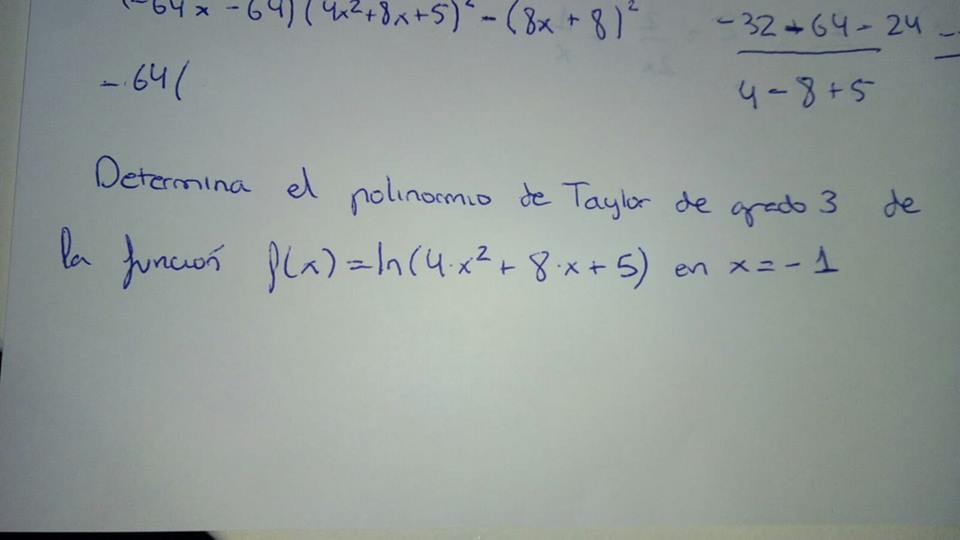 (-64x - 64)(4x²+8x+5)² - (8x + 8)²
-32 + 64 - 24 -
- 64(
4 - 8 + 5
Determina el polinomio de Taylor de grado 3 de
la función f(x) = ln(4·x² + 8·x + 5) en x = - 1